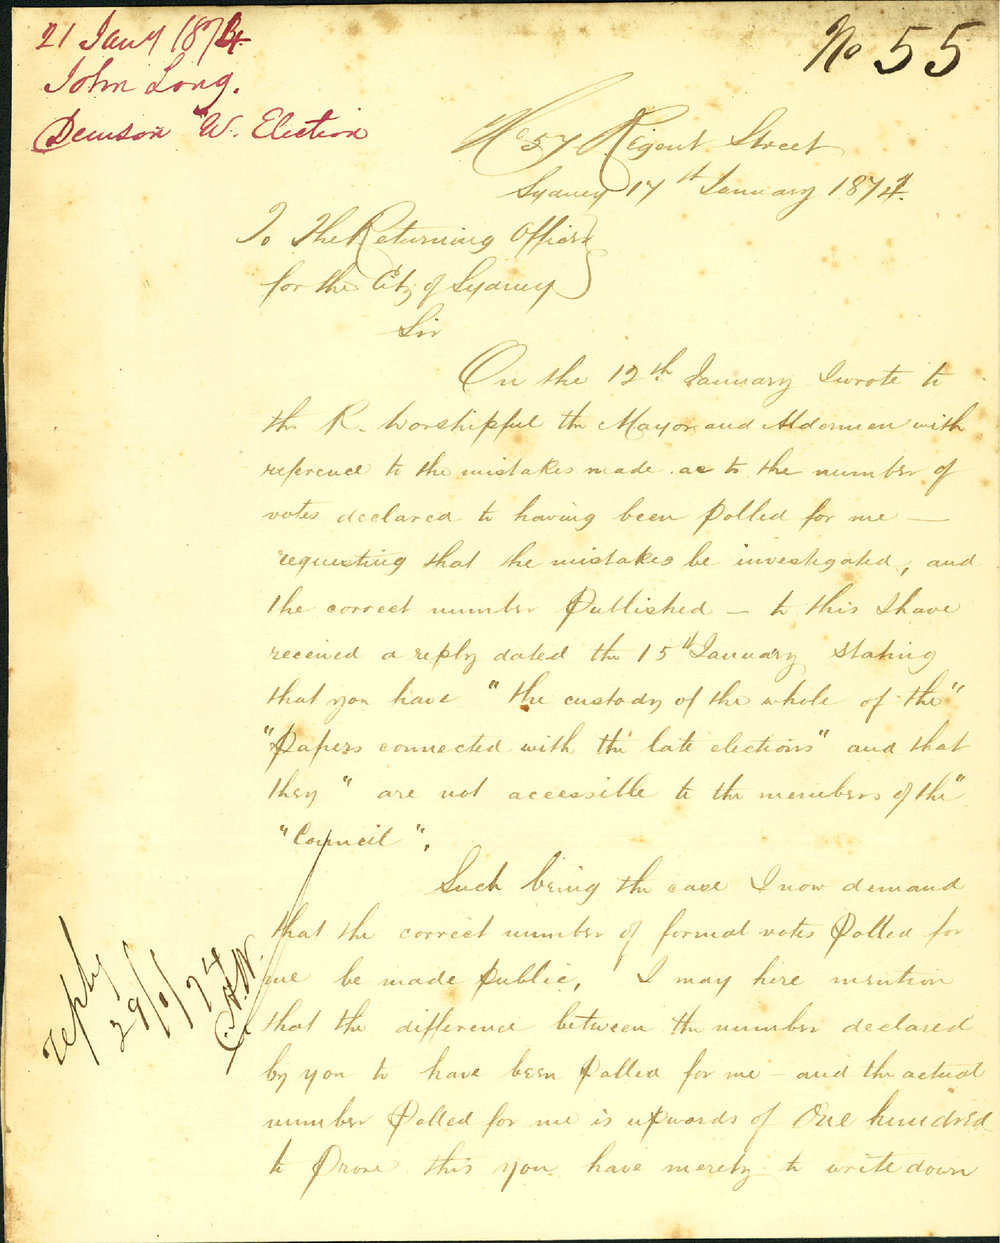 21 Jany 1874
John Long.
Denison W. Election
No 55
No 57 Regent Street
Sydney 17th January 1874.
To The Returning Officer
for the City of Sydney
Sir
On the 12th January I wrote to
the R. Worshipful the Mayor and Aldermen with
reference to the mistakes made as to the number of
votes declared to having been Polled for me —
requesting that the mistakes be investigated, and
the correct number Published — to this I have
received a reply dated the 15th January stating
that you have "the custody of the whole of the"
"Papers connected with the late elections" and that
they "are not accessible to the members of the"
"Council".
Such being the case I now demand
that the correct number of formal votes Polled for
me be made public, I may here mention
that the difference between the number declared
by you to have been Polled for me — and the actual
number Polled for me is upwards of One hundred
to Prove this you have merely to write down
reply
29/1/74